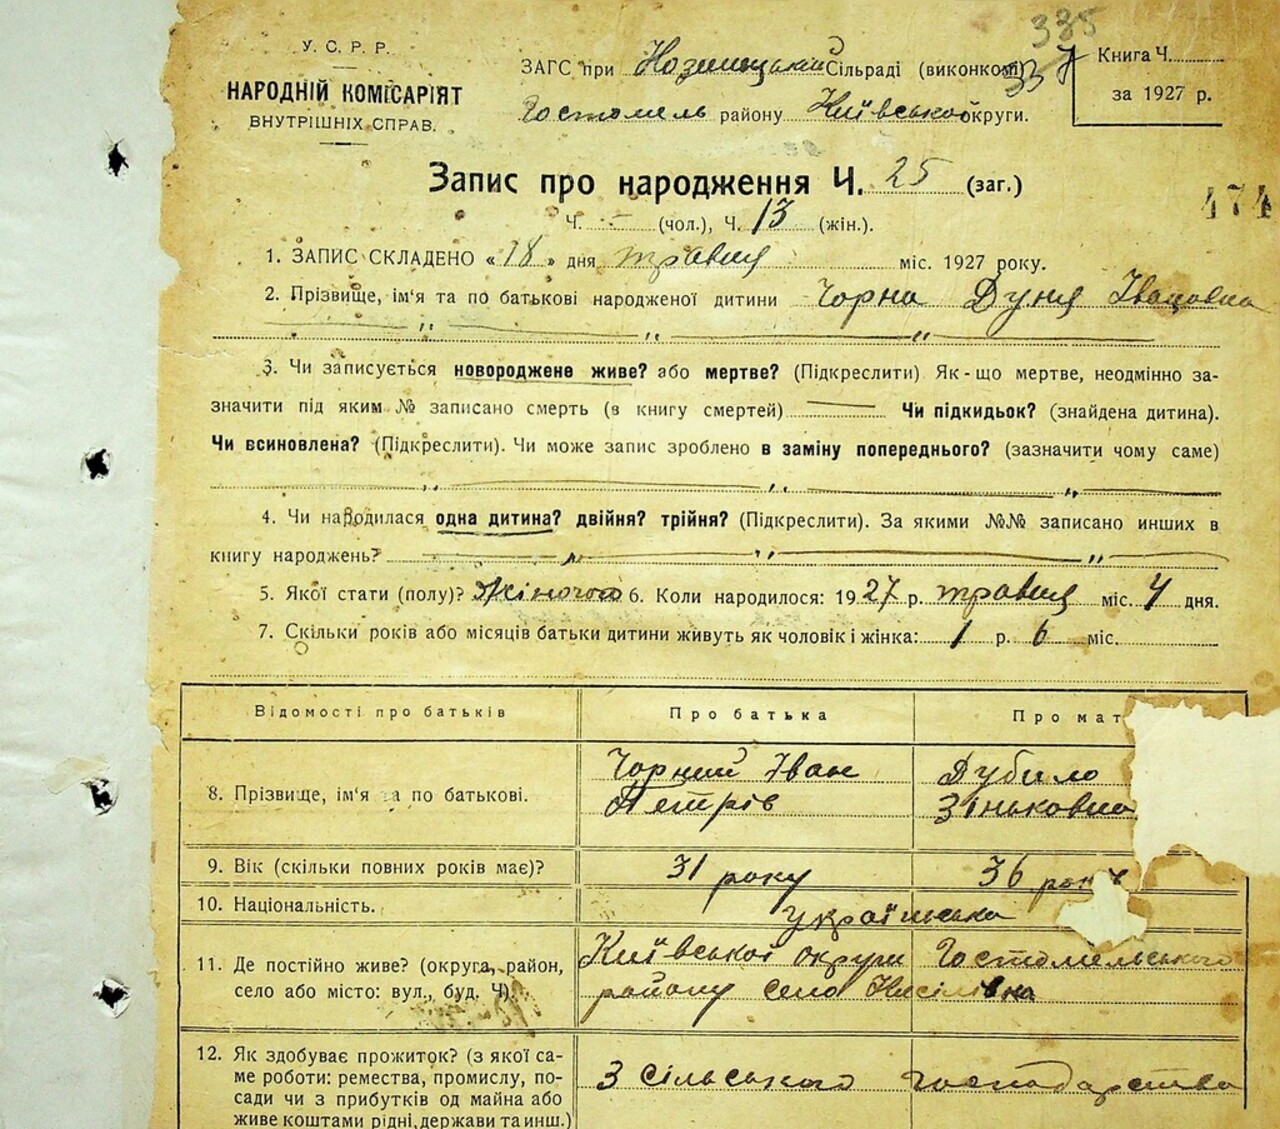 335
У. С. Р. Р.
НАРОДНІЙ КОМІСАРІЯТ
ВНУТРІШНІХ СПРАВ.
ЗАГС при Сільраді (виконком) 337
Гостомель району Київської округи.
Книга Ч.
за 1927 р.
Запис про народження Ч. 25 (заг.)
Ч. - (чол.), Ч. 13 (жін.).
474
1. ЗАПИС СКЛАДЕНО « 18 » дня травня міс. 1927 року.
2. Прізвище, ім‘я та по батькові народженої дитини Чорна Дуня Івановна
3. Чи записується новороджене живе? або мертве? (Підкреслити) Як-що мертве, неодмінно за-
значити під яким № записано смерть (в книгу смертей) Чи підкидьок? (знайдена дитина).
Чи всиновлена? (Підкреслити). Чи може запис зроблено в заміну попереднього? (зазначити чому саме)
4. Чи народилася одна дитина? двійня? трійня? (Підкреслити). За якими №№ записано инших в
книгу народжень?
5. Якої стати (полу)? Жіночої 6. Коли народилося: 1927 р. травня міс. 4 дня.
7. Скільки років або місяців батьки дитини живуть як чоловік і жінка: 1 р. 6 міс.
Відомості про батьків Про батька Про мат
8. Прізвище, ім‘я та по батькові.
Чорний Іван
Петрів
Дубило
Зіньковна
9. Вік (скільки повних років має)? 31 року 36 рок
10. Національність. Українська
11. Де постійно живе? (округа, район,
село або місто: вул., буд. Ч).
Київської округи Гостомельського
району село
12. Як здобуває прожиток? (з якої са-
ме роботи: ремества, промислу, по-
сади чи з прибутків од майна або
живе коштами рідні, держави та инш.)
З сільського господарства